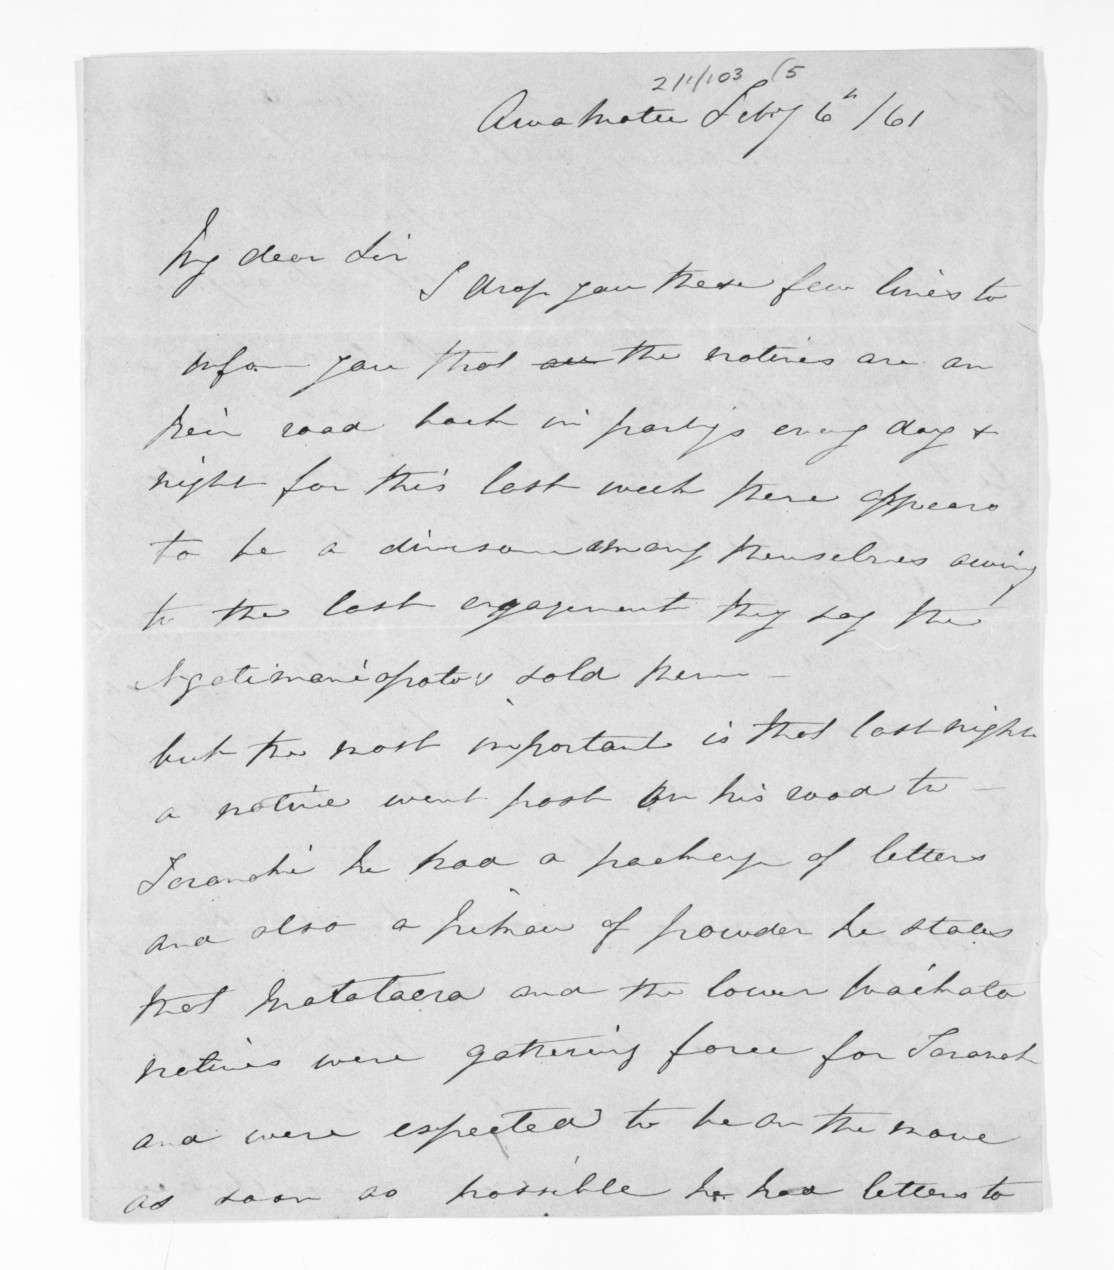 2/1/103 (5
Awamatu Feby 6th /61
My dear Sir
I drop you these few lines to
infom you that all the natives are on
their road back in partys every day &
night for this last week there appears
to be a division among themselves owing
to the last engagement they say the
Ngatimaniapoto's sold them -
but the most important is that last night
a native went past on his road to -
Taranaki he had a package of letters
and also a of powder he states
that Matataera and the lower Waikato
natives were gathering force for Taranak
and were expected to be on the move
as soon as possible he had letters to